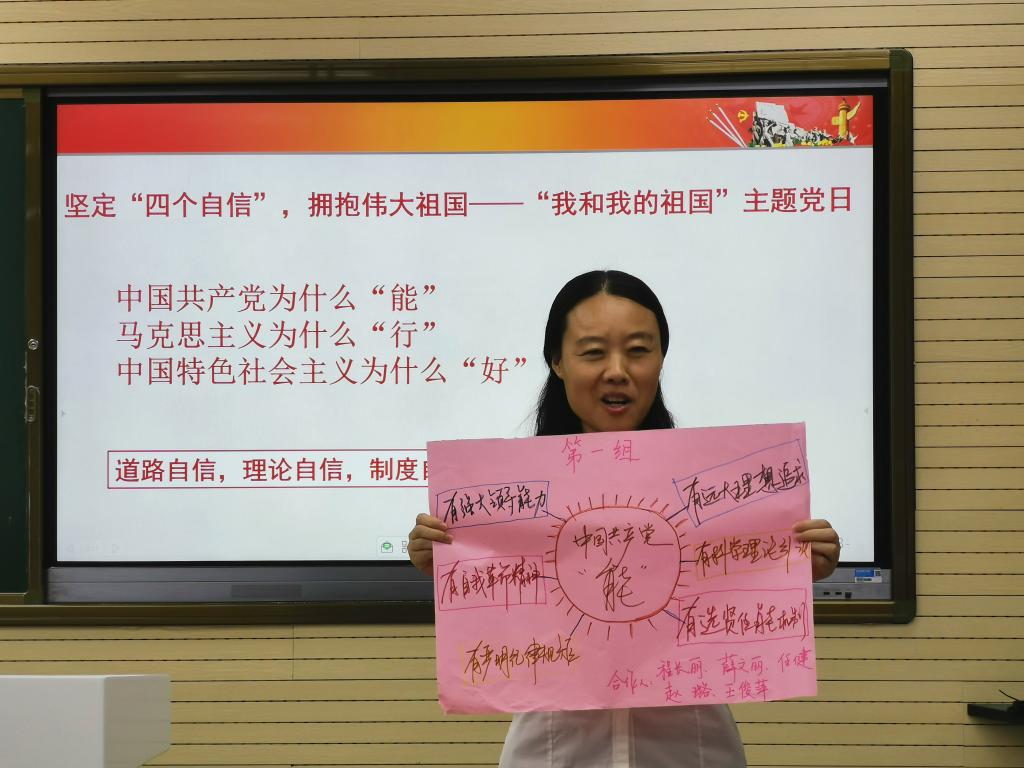 坚定“四个自信”，拥抱伟大祖国——“我和我的祖国”主题党日
中国共产党为什么“能”
马克思主义为什么“行”
中国特色社会主义为什么“好”
道路自信，理论自信，制度自
第一组
有强大领导能力
有远大理想追求
中国共产党
“能”
有自我革命精神
有科学理论引领
有严明纪律规矩
有选贤任能机制
合作人：程长丽、薛文丽、任健
赵璐、王俊苹